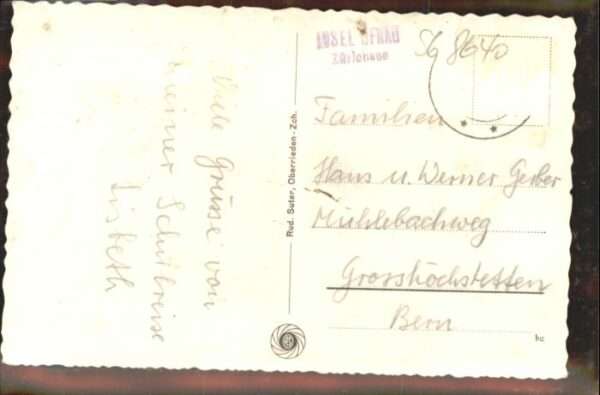 Viele Grüsse von
meiner Schulreise
Lisbeth
Rud. Suter, Oberrieden-Zch.
INSEL UFNAU
Zürichsee
SG 8640
Familien
Hans u. Werner Gerber
Mühlebachweg
Grosshöchstetten
Bern